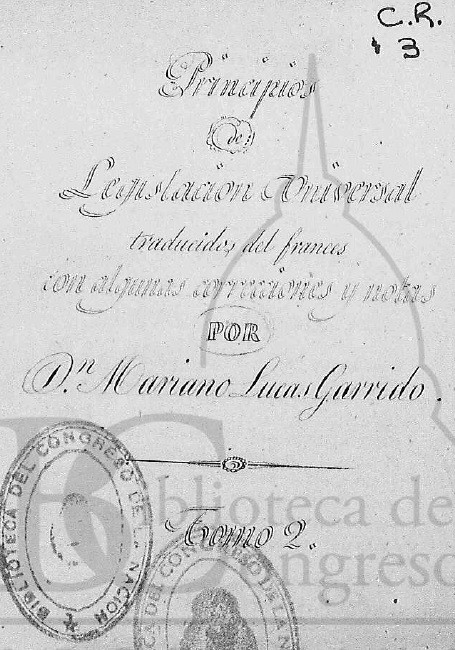 C.R.
13
Principios
de
Legislacion Universal
traducidos del frances
con algunas correcciones y notas
POR
D.n Mariano Lucas Garrido.
Tomo 2.
Biblioteca del
Congreso
BIBLIOTECA DEL CONGRESO DE LA NACION
CA DEL CONGRESO DE LA N